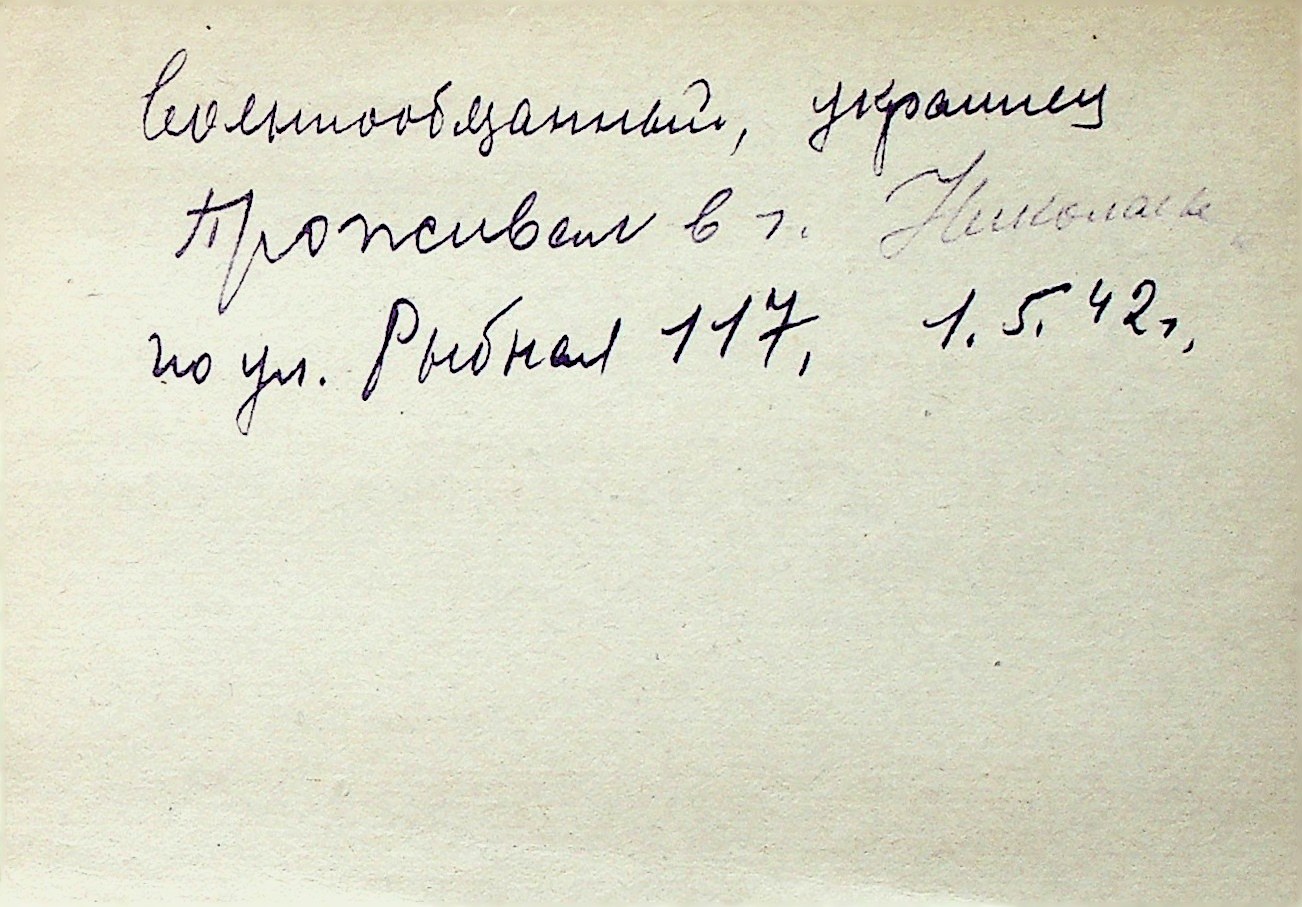 Военнообязанный, украинец
Проживал в г. Николаеве
по ул. Рыбная 117, 1.5.42г,